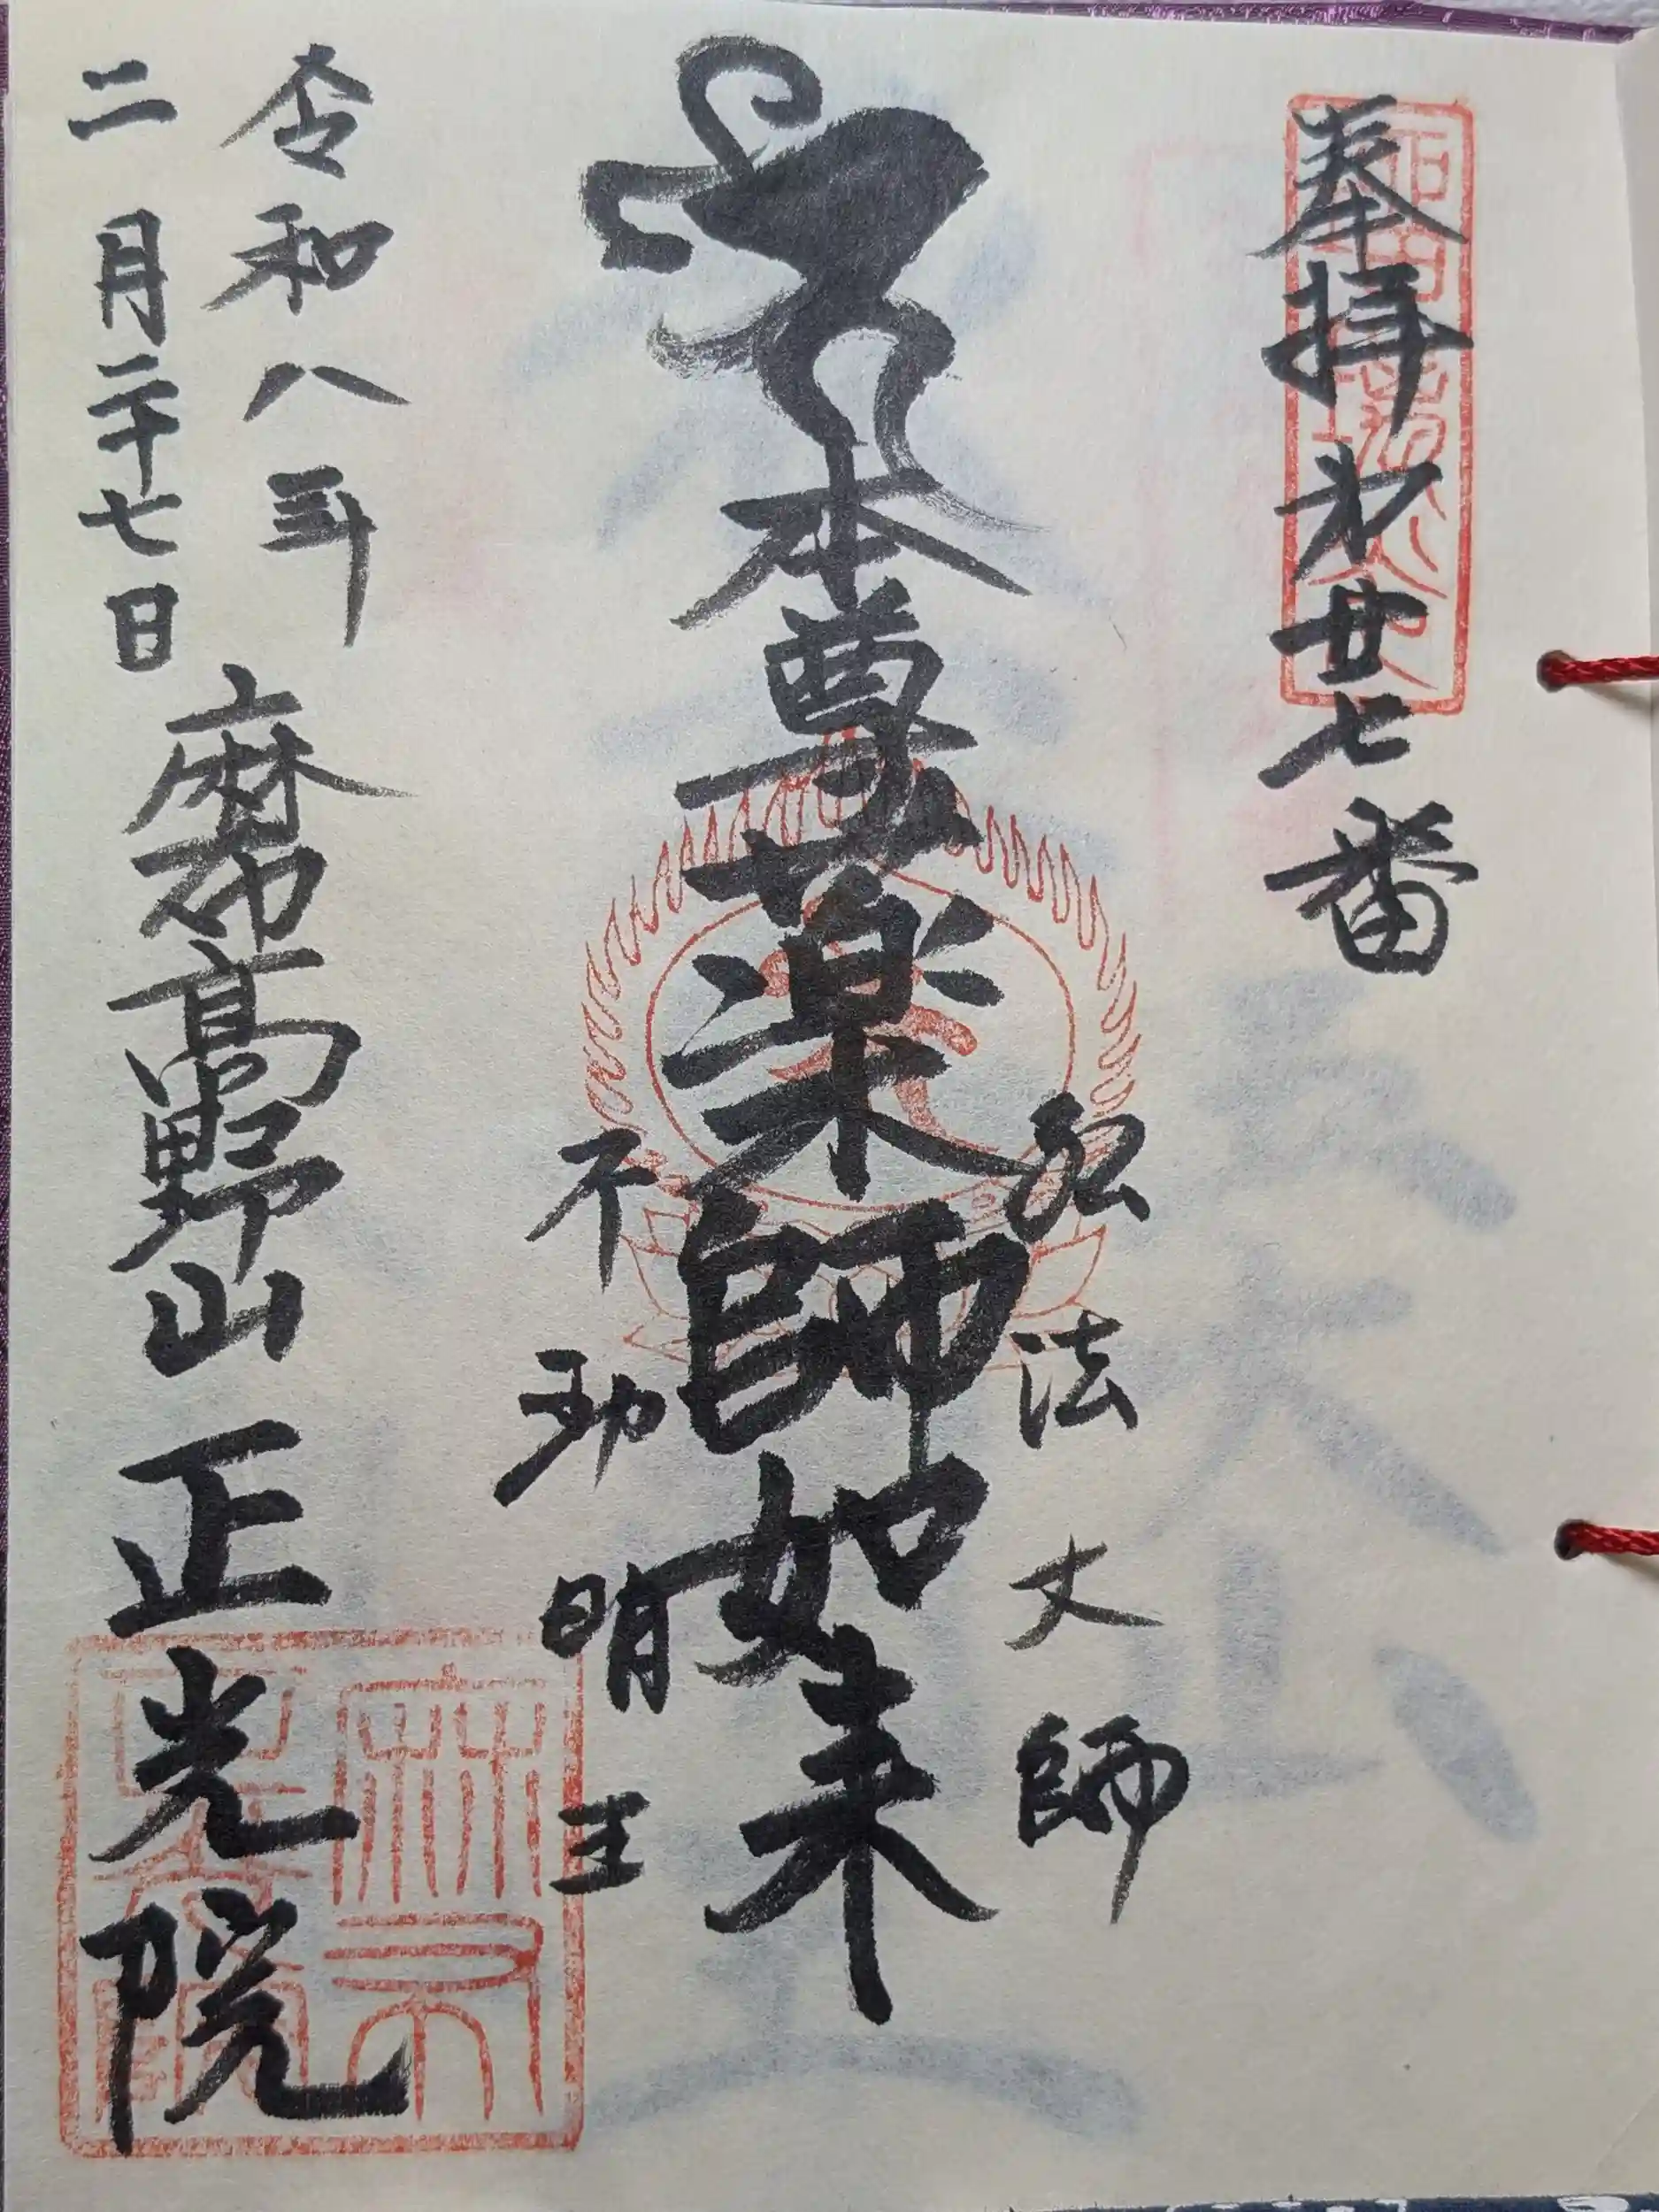 奉拝 第廿七番
弘法大師
本尊薬師如来
不動明王
令和八年
二月二十七日
麻布高野山 正光院